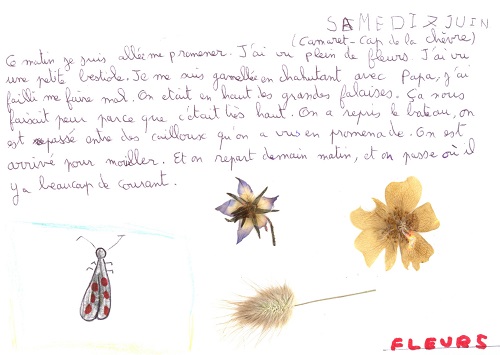 SAMEDI 2 JUIN
(Camaret-Cap de la chèvre)
Ce matin je suis allée me promener. J'ai vu plein de fleurs. J'ai vu
une petite bestiole. Je me suis gamellée en chahutant avec Papa, j'ai
failli me faire mal. On était en haut des grandes falaises. Ça nous
faisait peur parce que c'était très haut. On a repris le bateau, on
est repassé entre des cailloux qu'on a vus en promenade. On est
arrivé pour mouiller. Et on repart demain matin, et on passe où il
y a beaucoup de courant.
FLEURS